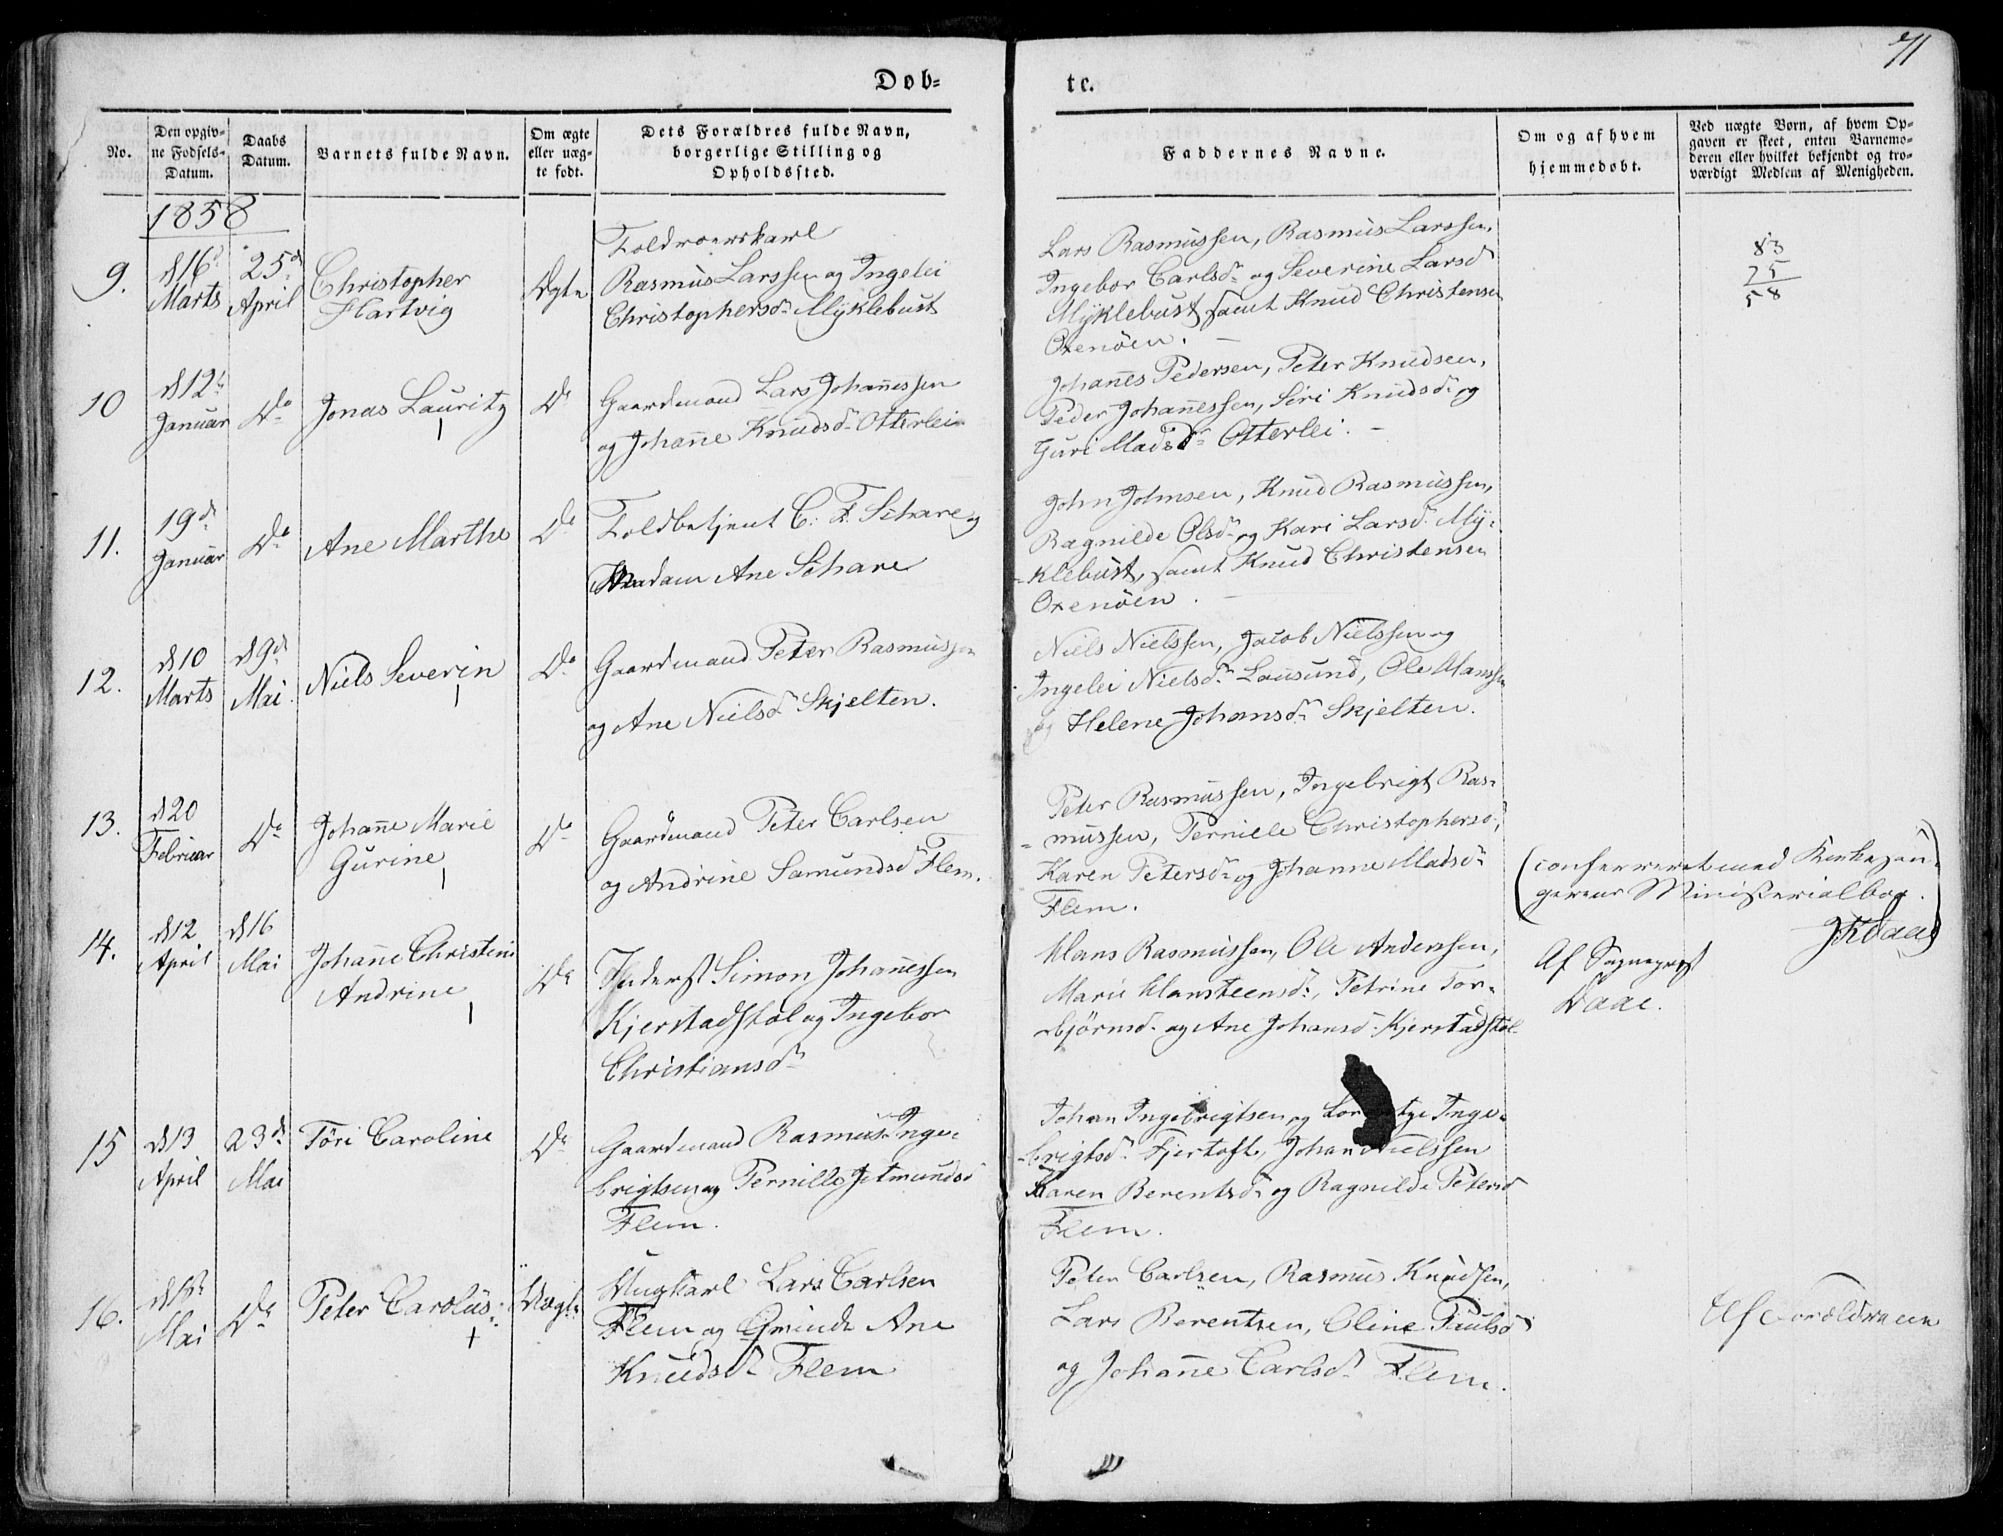 71
Døb=
te.
No.
Den opgiv=
ne Fødsels=
Datum.
Daabs
Datum.
Barnets fulde Navn.
Om ægte
eller uæg=
te født.
Dets Forældres fulde Navn,
borgerlige Stilling og
Opholdssted.
Faddernes Navne.
Om og af hvem
hjemmedøbt.
Ved uægte Børn, af hvem Op=
gaven er skeet, enten Barnemo=
deren eller hvilket bekjendt og tro=
værdigt Medlem af Menigheden.
1858
9.
d 16d
Marts
25d
April
Christopher
Hartvig
Ægte
Toldroerskarl
Rasmus Larssen og Ingelei
Christophersd. Myklebust
Lars Rasmussen, Rasmus Larssen,
Ingebor Carlsd. og Severine Larsd
Myklebust samt Knud Christensen
Oxenøen.
83
25
58
10
d 12
Januar
Do
Jonas Lauritz
Do
Gaardmand Lars Johannessen
og Johanne Knudsd. Otterlei
Johannes Pedersen, Peter Knudsen,
Peder Johannessen, Siri Knudsd. og
Guri Madsd. Otterlei.
11.
19d
Januar
Do
Ane Marthe
Do
Toldbetjent C. F. Schare og
Madam Ane Schare
John Johnsen, Knud Rasmussen,
Ragnilde Olsd. og Kari Larsd. My=
klebust, samt Knud Christensen
Oxenøen.
12.
d 10
Marts
d 9d
Mai.
Niels Severin
Do
Gaardmand Peter Rasmussen
og Ane Nielsd. Skjelten.
Niels Nielssen, Jacob Nielssen og
Ingelei Nielsd. Lausund, Ole Hanssen
og Helene Johansd. Skjelten.
13.
d 20
Februar
Do
Johanne Marie
Gurine
Do
Gaardmand Peter Carlsen
og Andrine Samundsd Flem.
Peter Rasmussen, Ingebrigt Ras=
mussen, Pernille Christophersd,
Karen Petersd. og Johanne Madsd.
Flem.
(confereret med Kirkesan=
gerens Ministerialbog.)
JKDaae
14.
d 12
April
d 16
Mai
Johanne Christine
Andrine
Do
Inderst Simon Johannessen
Kjerstadstøl og Ingebor
Christiansd.
Hans Rasmussen, Ole Anderssen,
Marie Hansteensd., Petrine Tor=
bjørnsd. og Ane Johansd. Kjerstadstøl
Af Sognepræst
Daae.
15
d 13
April
23d
Mai
Tøri Caroline
Do
Gaardmand Rasmus Inge=
brigtsen og Pernille Jetmundsd
Flem.
Johan Ingebrigtsen og Inge=
brigtsd. Fjertoft, Johan Nielssen
Karen Berentsd. og Ragnilde Petersd
Flem.
16.
Mai
Do
Peter Carolus
Uægte
Ungkarl Lars Carlsen
Flem og Qvinde Ane
Knudsd. Flem
Peter Carlsen, Rasmus Knudsen,
Lars Berentsen, Oline Paulsd
og Johanne Carlsd. Flem.
Af Forældrene